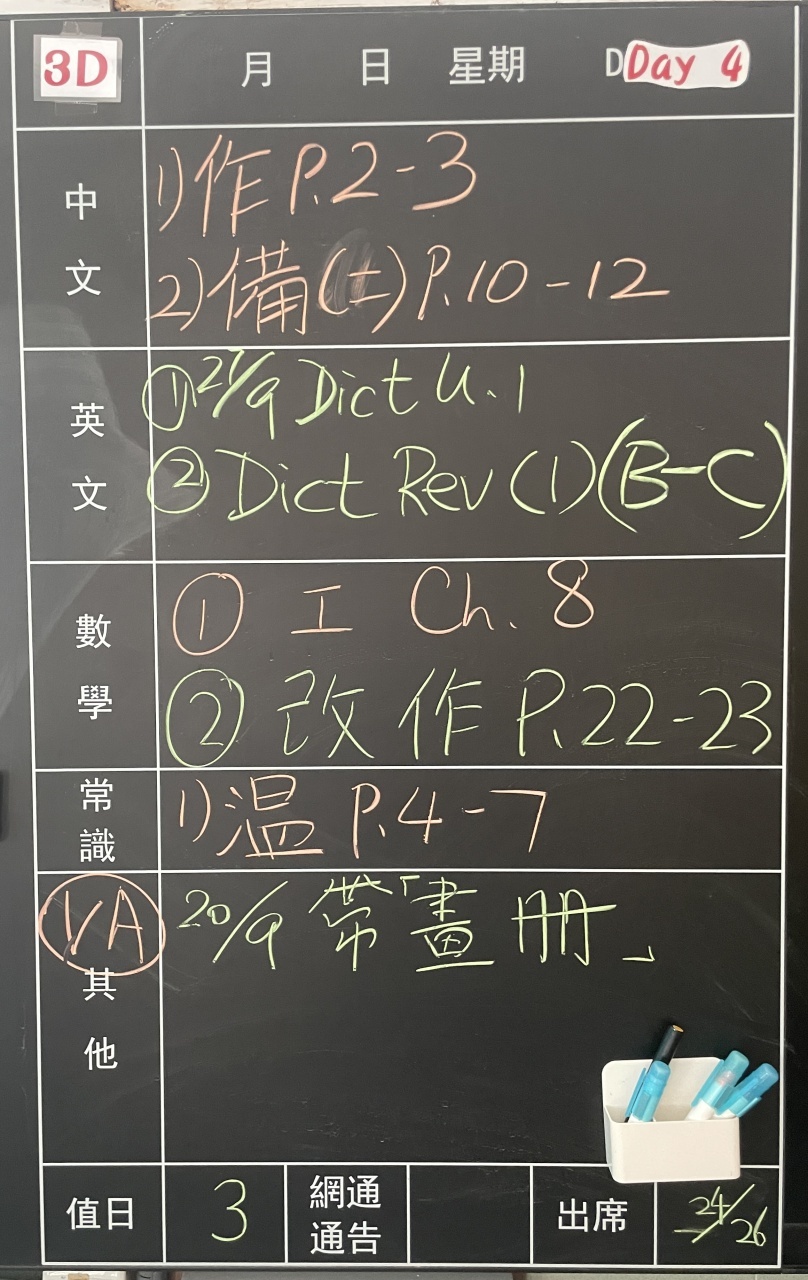 3D 月 日 星期 D Day 4
中文
1)作 P.2-3
2)備(二)P.10-12
英文
① 21/9 Dict U.1
② Dict Rev (1)(B-C)
數學
① 工 Ch. 8
② 改作 P.22-23
常識
1)温 P.4-7
VA
其他
20/9 帶「畫冊」
值日 3 網通通告 出席 24/26